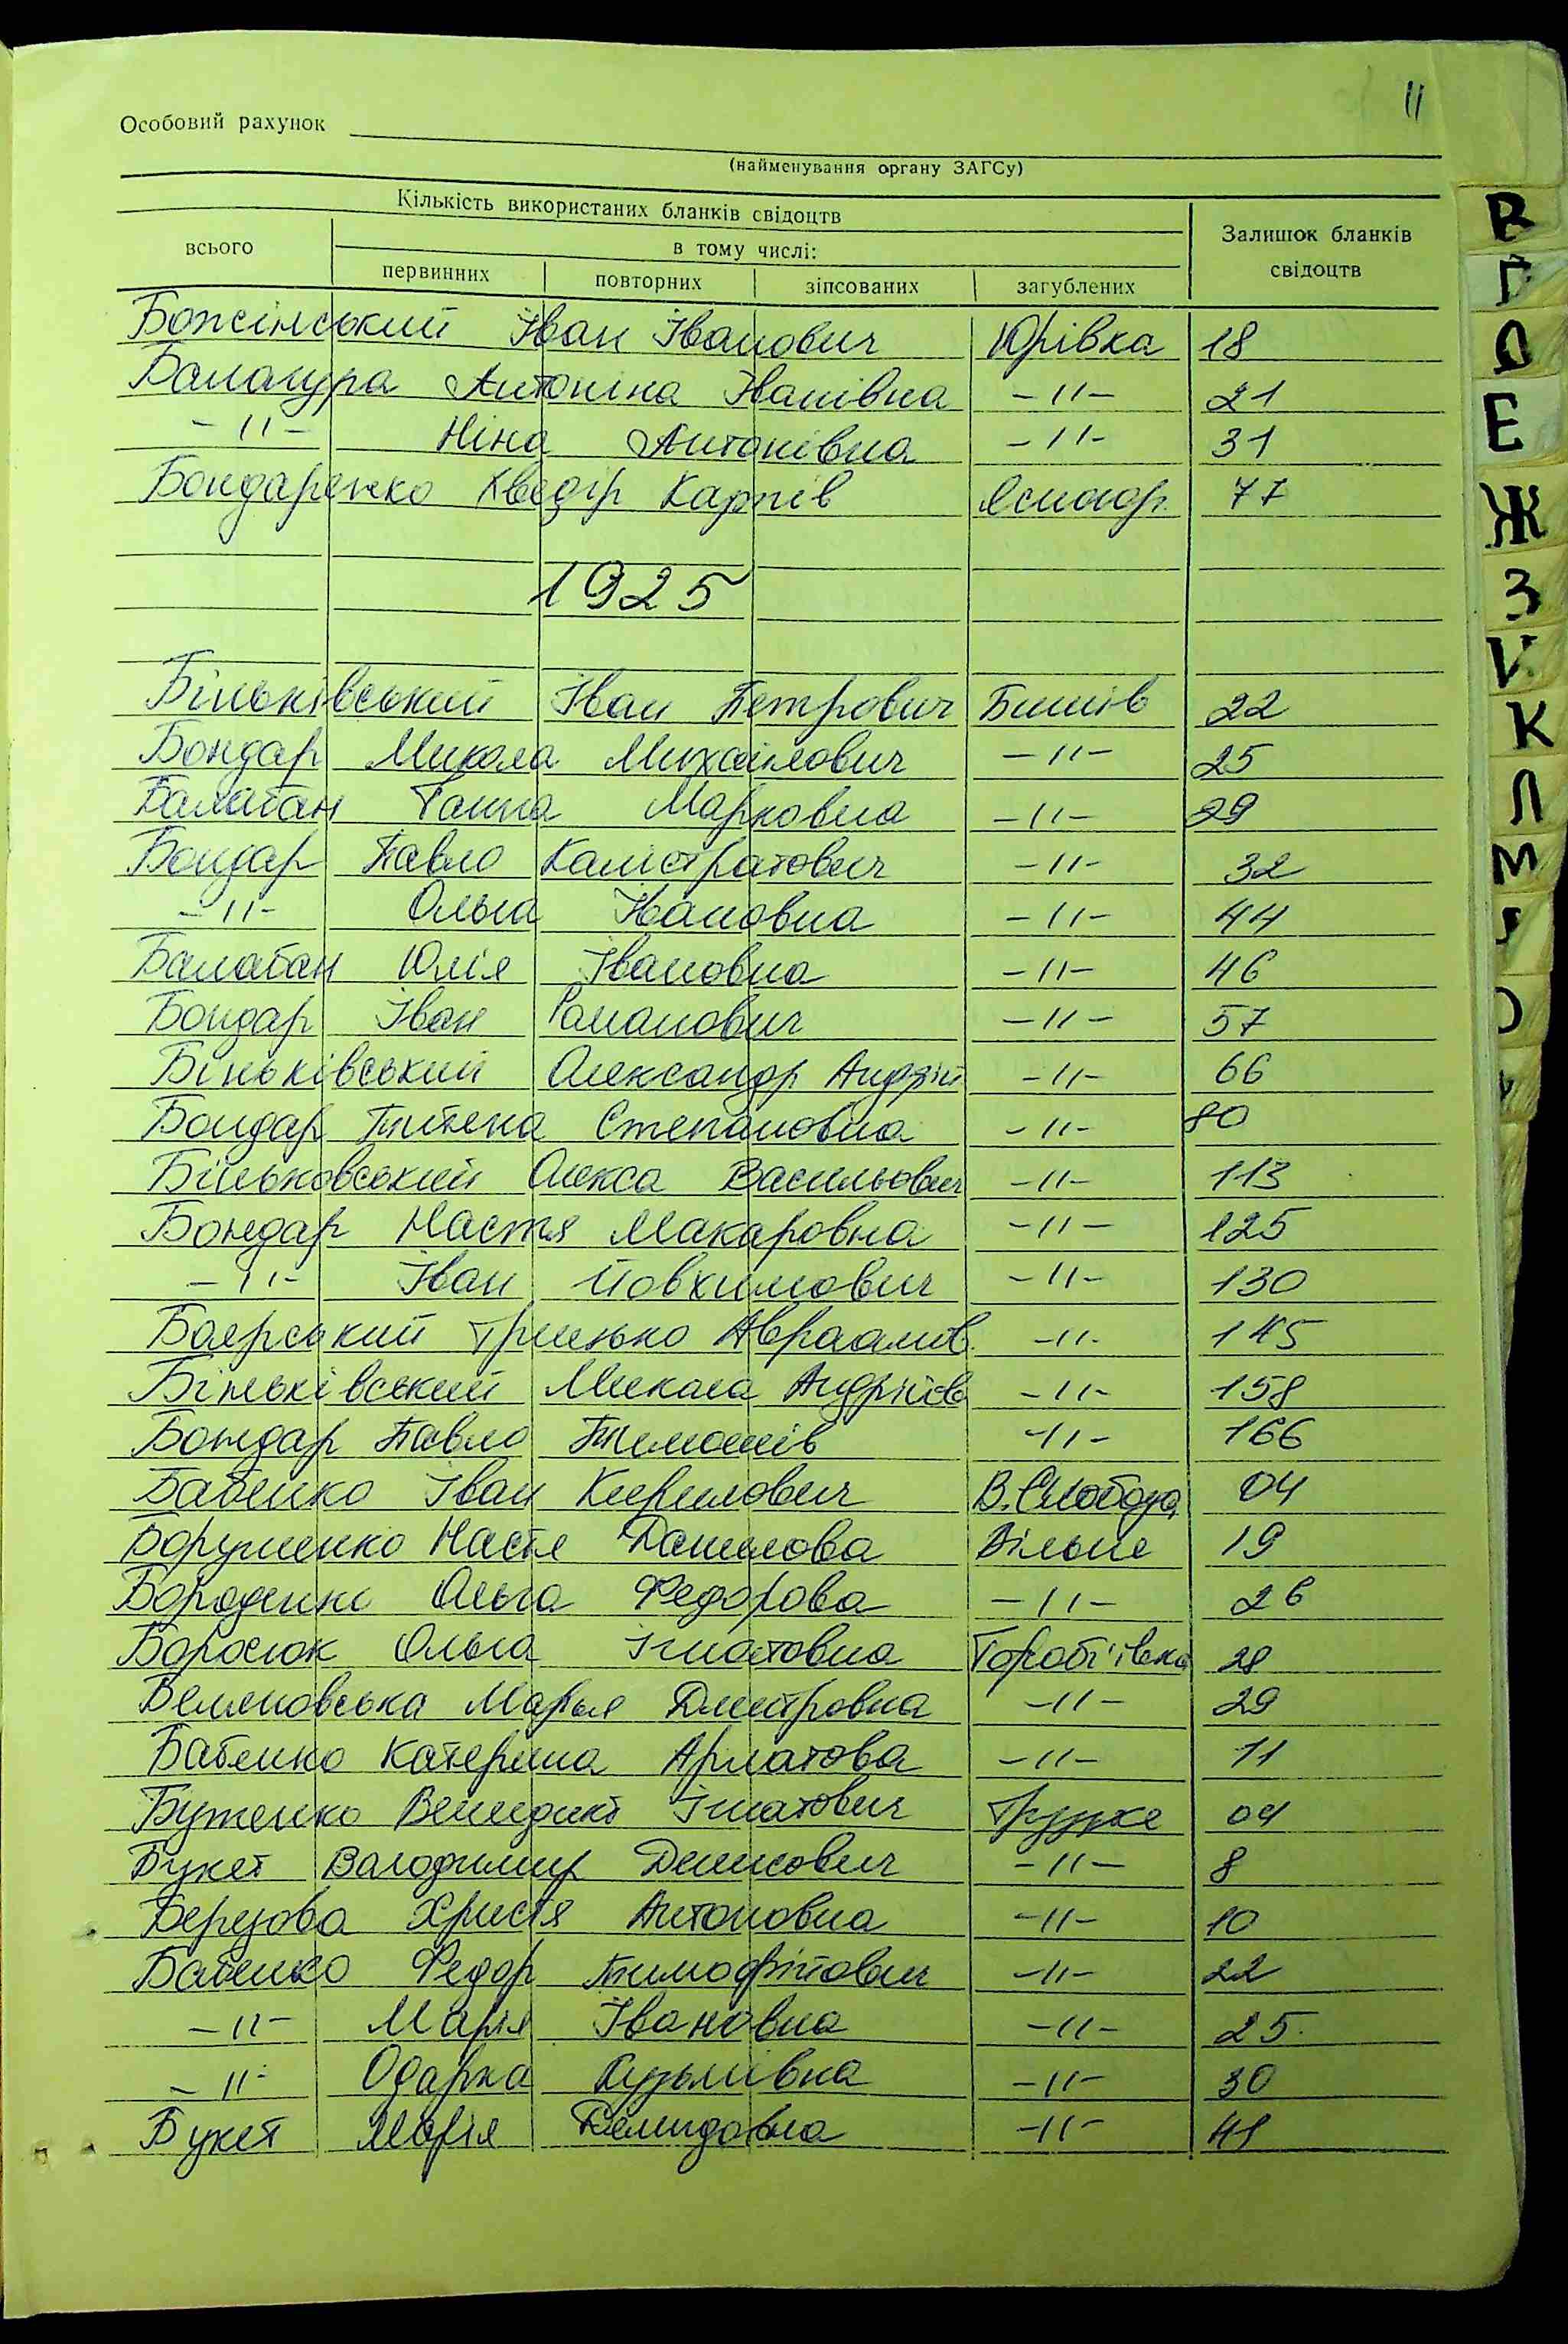 11
Особовий рахунок
(найменування органу ЗАГСу)
Кількість використаних бланків свідоцтв
всього
в тому числі:
первинних повторних зіпсованих загублених
Залишок бланків свідоцтв
Божінський Іван Іванович Юрівка 18
Балагура Антоніна Іванівна -11- 21
-11- Ніна Антонівна -11- 31
Бондаренко Кведір Карпів 77
1925
Біньківський Іван Петрович Бишів 22
Бондар Микола Михайлович -11- 25
Балабан Ганна Марковна -11- 29
Бондар Павло Калістратович -11- 32
-11- Ольга Івановна -11- 44
Балабан Юлія Івановна -11- 46
Бондар Іван Романович -11- 57
Біньківський Олександр Андрій -11- 66
Бондар Степановна -11- 80
Біньковський Олекса Васильович -11- 113
Бондар Настя Макаровна -11- 125
-11- Іван Йовхимович -11- 130
Боярський Грицько Авраамів. -11- 145
Біньківський Микола Андрійов -11- 158
Бондар Павло Тимошів -11- 166
Бабенко Іван Кирилович В.Слобода 04
Настя Данилова Вільне 19
Бороденко Ольга Федорова -11- 26
Боросюк Ольга Ігнатовна Горобіївка 28
Марья Дмитровна -11- 29
Бабенко Катерина -11- 11
Бутенко Венедикт Ігнатович Грузке 04
Букет Володимир Денисович -11- 8
Березова Христя Антоновна -11- 10
Бабенко Федор Тимофійович -11- 22
-11- Марія Івановна -11- 25
-11- Одарка Кузьмівна -11- 30
Букет Марія Демидовна -11- 41
В
Г
Д
Е
Ж
З
И
К
Л
М